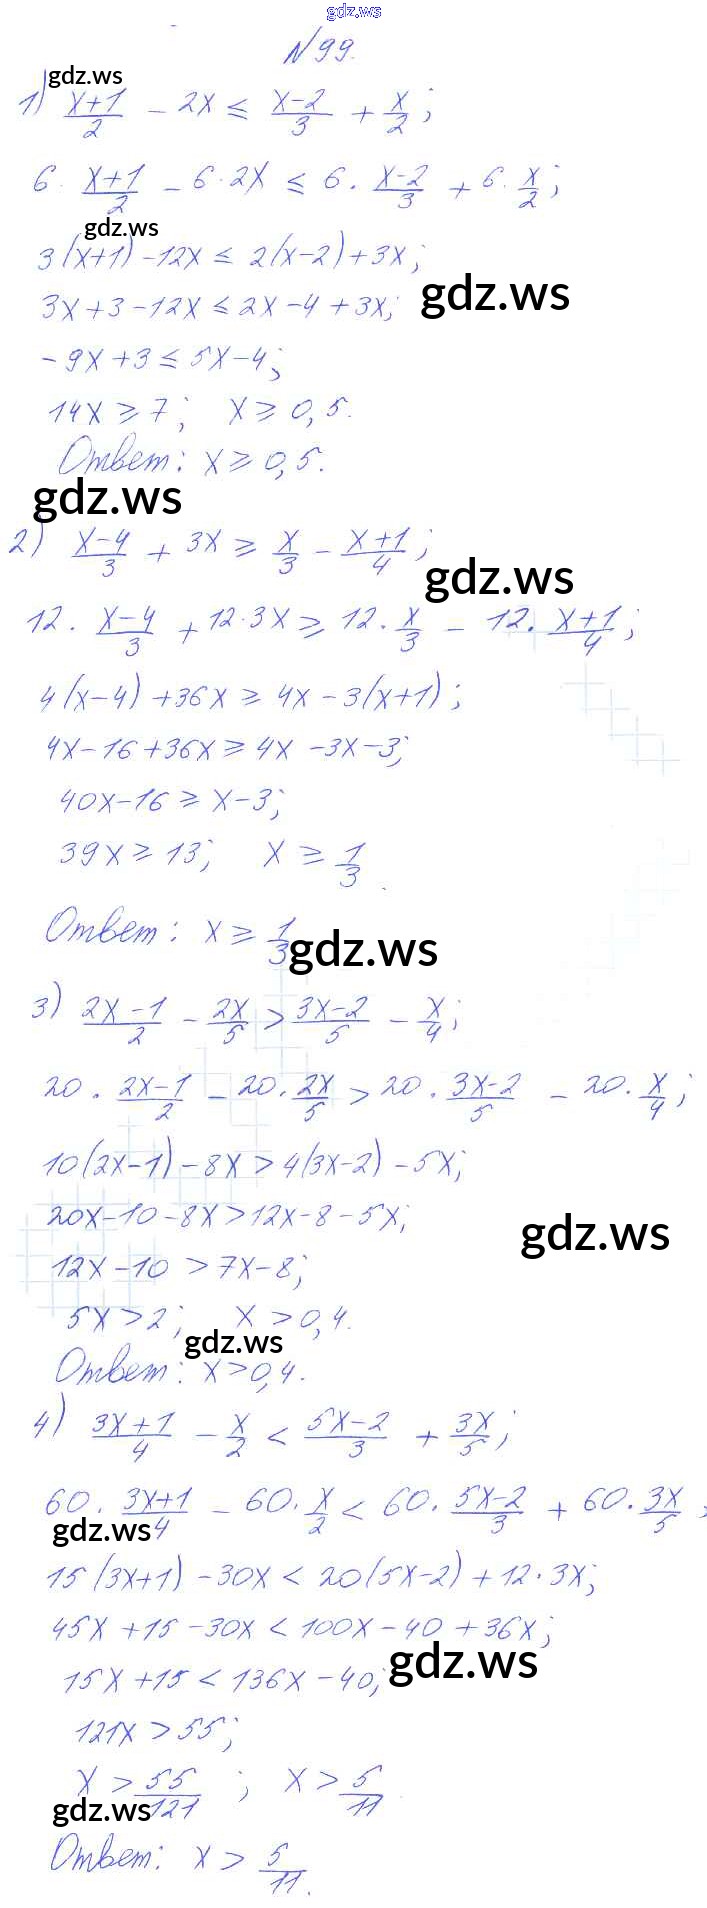 gdz.ws
N99.
gdz.ws
1) (x+1)/2 - 2x ≤ (x-2)/3 + x/2;
6 · (x+1)/2 - 6·2x ≤ 6 · (x-2)/3 + 6 · x/2;
gdz.ws
3(x+1) - 12x ≤ 2(x-2) + 3x;
gdz.ws
3x + 3 - 12x ≤ 2x - 4 + 3x;
-9x + 3 ≤ 5x - 4;
14x ≥ 7; x ≥ 0,5.
Ответ: x ≥ 0,5.
gdz.ws
2) (x-4)/3 + 3x ≥ x/3 - (x+1)/4;
gdz.ws
12 · (x-4)/3 + 12·3x ≥ 12 · x/3 - 12 · (x+1)/4;
4(x-4) + 36x ≥ 4x - 3(x+1);
4x - 16 + 36x ≥ 4x - 3x - 3;
40x - 16 ≥ x - 3;
39x ≥ 13; x ≥ 1/3.
Ответ: x ≥ 1/3
gdz.ws
3) (2x-1)/2 - 2x/5 > (3x-2)/5 - x/4;
20 · (2x-1)/2 - 20 · 2x/5 > 20 · (3x-2)/5 - 20 · x/4;
10(2x-1) - 8x > 4(3x-2) - 5x;
20x - 10 - 8x > 12x - 8 - 5x;
gdz.ws
12x - 10 > 7x - 8;
5x > 2; x > 0,4.
gdz.ws
Ответ: x > 0,4.
4) (3x+1)/4 - x/2 < (5x-2)/3 + 3x/5;
60 · (3x+1)/4 - 60 · x/2 < 60 · (5x-2)/3 + 60 · 3x/5;
gdz.ws
15(3x+1) - 30x < 20(5x-2) + 12·3x;
45x + 15 - 30x < 100x - 40 + 36x;
gdz.ws
15x + 15 < 136x - 40;
121x > 55;
x > 55/121; x > 5/11.
gdz.ws
Ответ: x > 5/11.